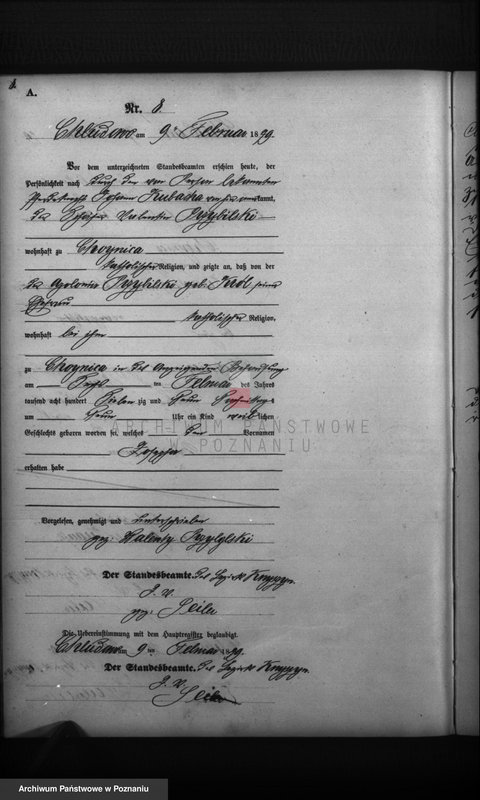 A.
Nr. 8.
Chludowo am 9. Februar 1899
Vor dem unterzeichneten Standesbeamten erschien heute, der
Persönlichkeit nach durch den von Person bekannten
Johann Kubacha kannt,
der Valentin Przybilski
wohnhaft zu Chojnica
katholischer Religion, und zeigte an, daß von der
Apolonia Przybilski geb. Król seiner
Ehefrau
katholischer Religion,
wohnhaft bei ihm
zu Chojnica in des Anzeigenden Behausung
am ten Februar des Jahres
tausend acht hundert zig und neun
um neun Uhr ein Kind weiblichen
Geschlechts geboren worden sei, welches den Vornamen
Josepha
erhalten habe
Vorgelesen, genehmigt und unterschrieben
gez. Walenty
Der Standesbeamte.
J. V.
gez. Seiler
Die Uebereinstimmung mit dem Hauptregister beglaubigt.
Chludowo am 9 ten Februar 1899.
Der Standesbeamte.
J. V.
Seiler
ARCHIWUM PAŃSTWOWE
W POZNANIU
Archiwum Państwowe w Poznaniu